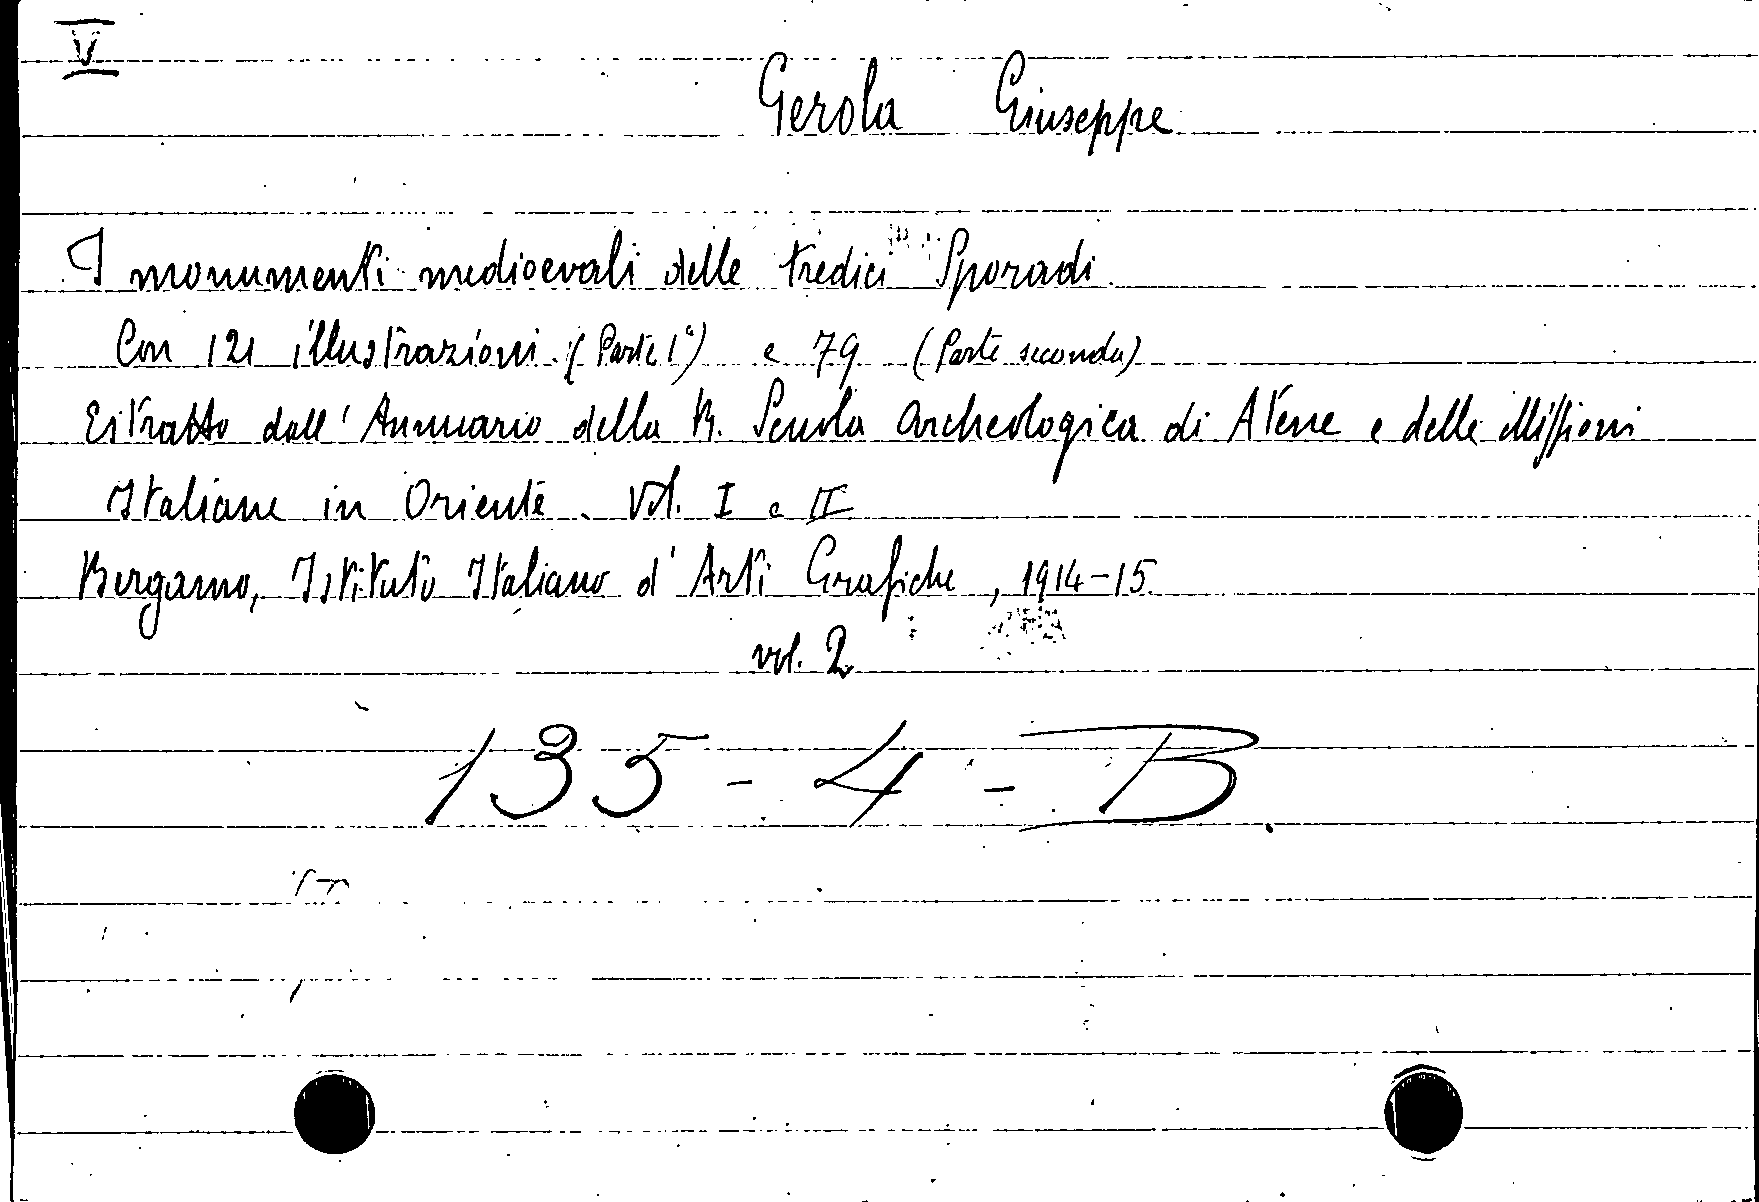 V
Gerola Giuseppe
I monumenti medioevali delle tredici Sporadi.
Con 121 illustrazioni. (Parte 1ª) e 79 (Parte seconda)
Estratto dall'Annuario della R. Scuola Archeologica di Atene e delle Missioni
Italiane in Oriente. Vol. I e II
Bergamo, Istituto Italiano d'Arti Grafiche, 1914-15.
vol. 2
135 - 4 - B.